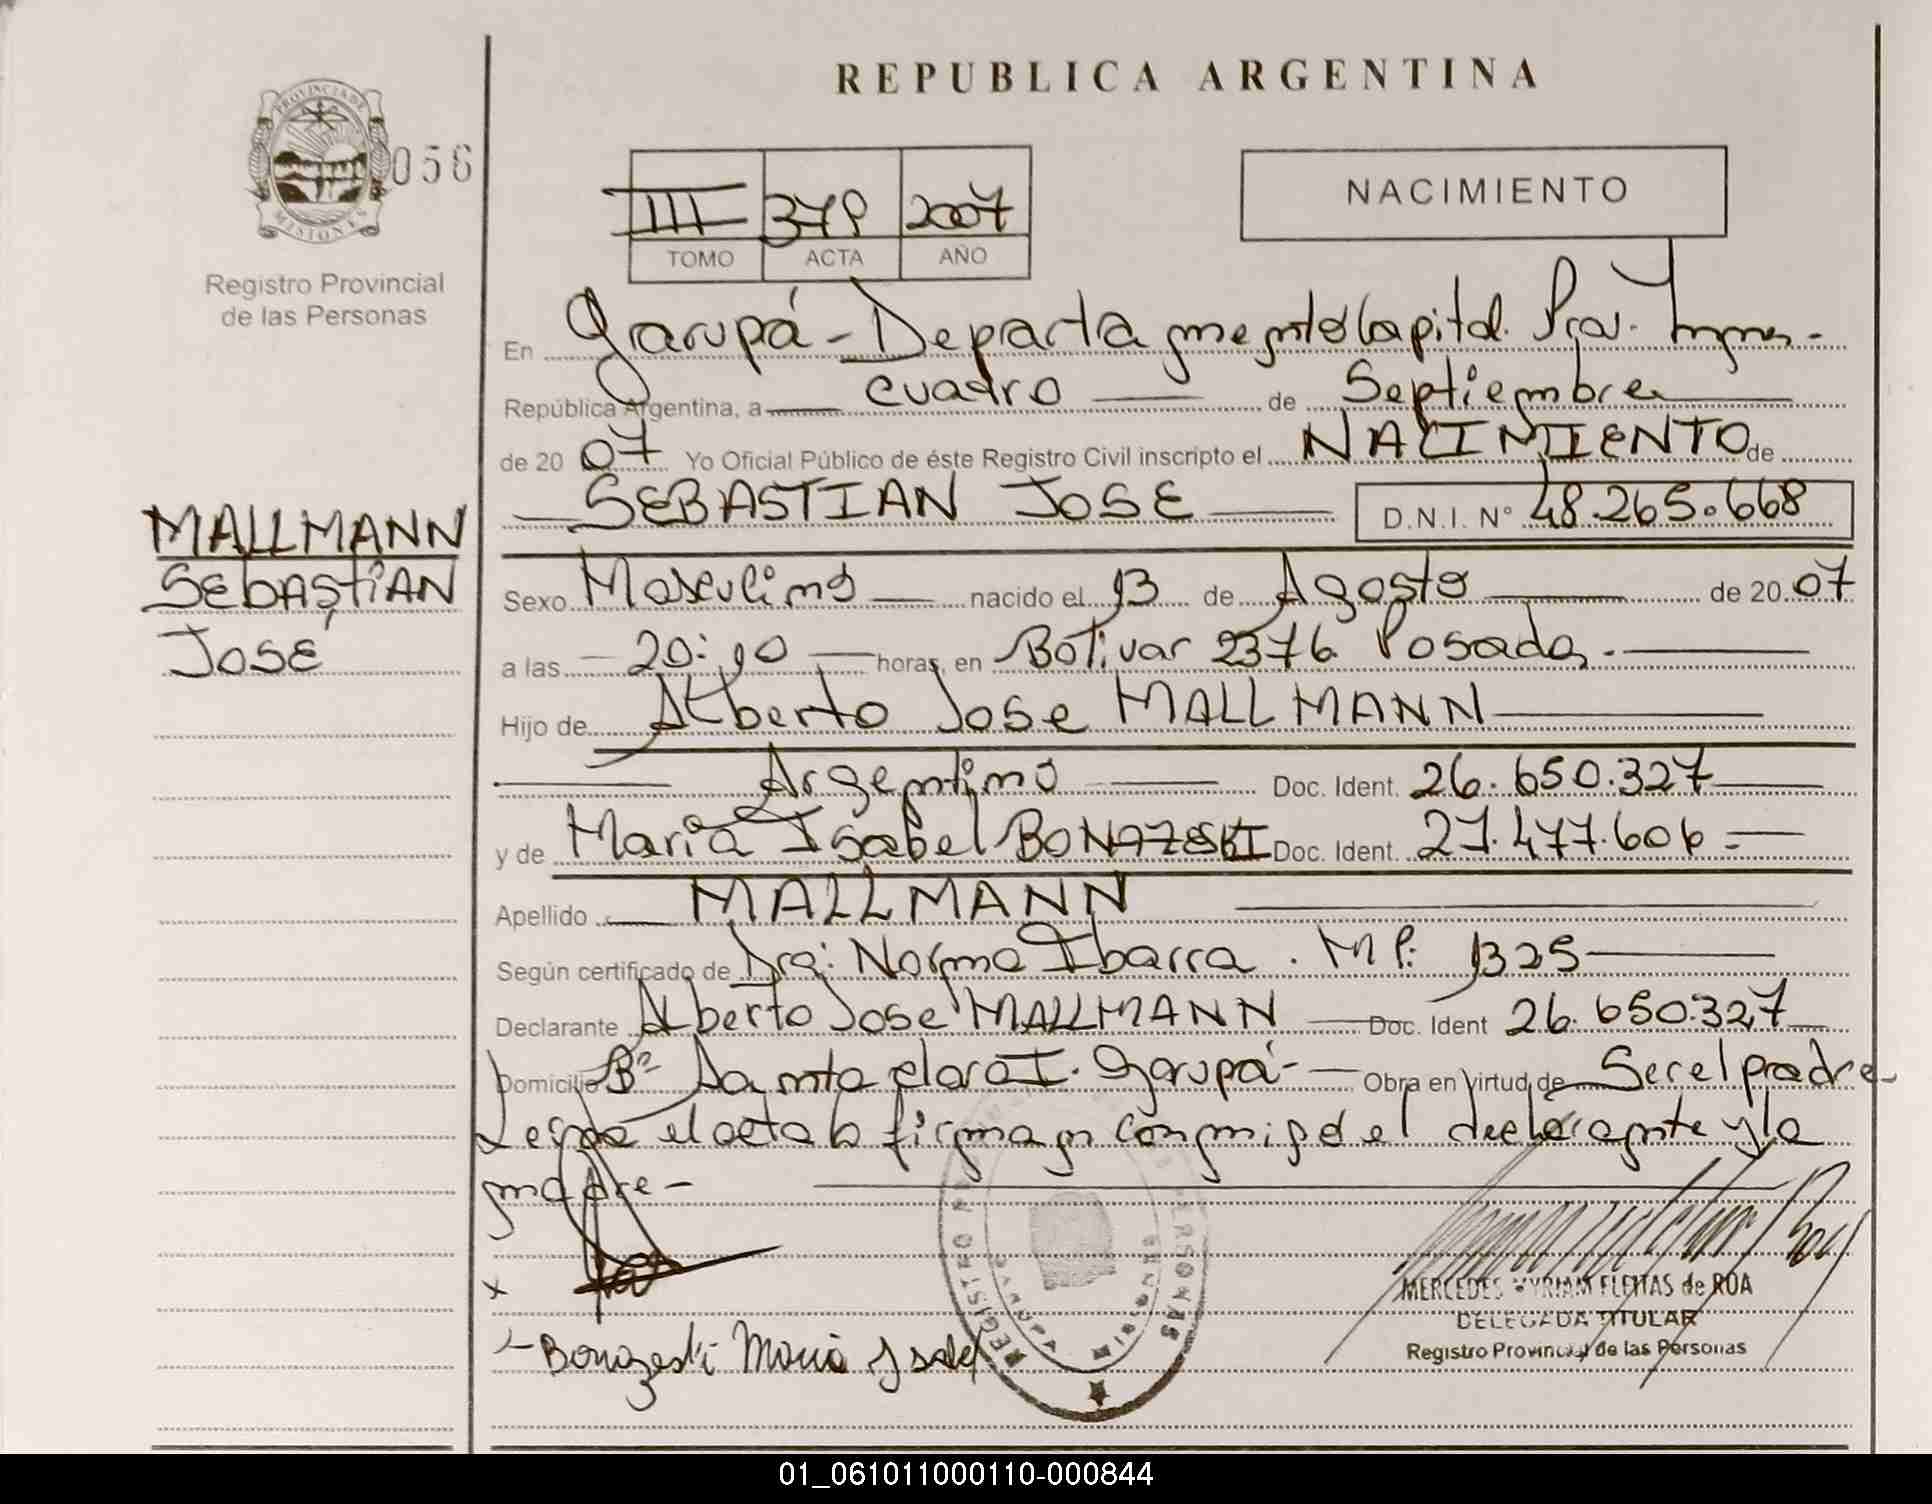 REPUBLICA ARGENTINA
PROVINCIA DE
MISIONES
056
Registro Provincial
de las Personas
III 379 2007
TOMO ACTA AÑO
NACIMIENTO
En Garupá - Departamento Capital. Prov. Mnes.-
República Argentina, a cuatro de Septiembre
de 20 07 Yo Oficial Público de éste Registro Civil inscripto el NACIMIENTO de
SEBASTIAN JOSE D.N.I. N° 48.265.668
MALLMANN
SEBASTIAN
JOSÉ
Sexo Masculino nacido el 13 de Agosto de 20 07
a las 20:10 horas, en Bolivar 2376 Posadas.
Hijo de Alberto Jose MALLMANN
Argentino Doc. Ident. 26.650.327
y de Maria Isabel BONAZESKI Doc. Ident. 27.477.606
Apellido MALLMANN
Según certificado de Dra: Norma Ibarra. M P. 1325
Declarante Alberto Jose MALLMANN Doc. Ident 26.650.327
Domicilio B° Santa clara I. Garupá- Obra en Virtud de Ser el padre-
Leida el acta la firman conmigo el declarante y la
madre-
x
Bonazeski Maria Ysabel
REGISTRO PERSONAS
GARUPA MISIONES
MERCEDES MYRIAM FLEITAS de ROA
DELEGADA TITULAR
Registro Provincial de las Personas
01_061011000110-000844